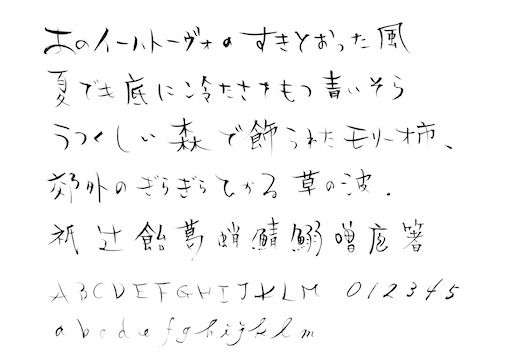 あのイーハトーヴォのすきとおった風
夏でも底に冷たさをもつ青いそら
うつくしい森で飾られたモリーオ市、
郊外のぎらぎらひかる草の波.
祇 辻 飴 葛 蛸 鯖 鰯 噌 庖 箸
ABCDEFGHIJKLM 012345
abcdefghijklm